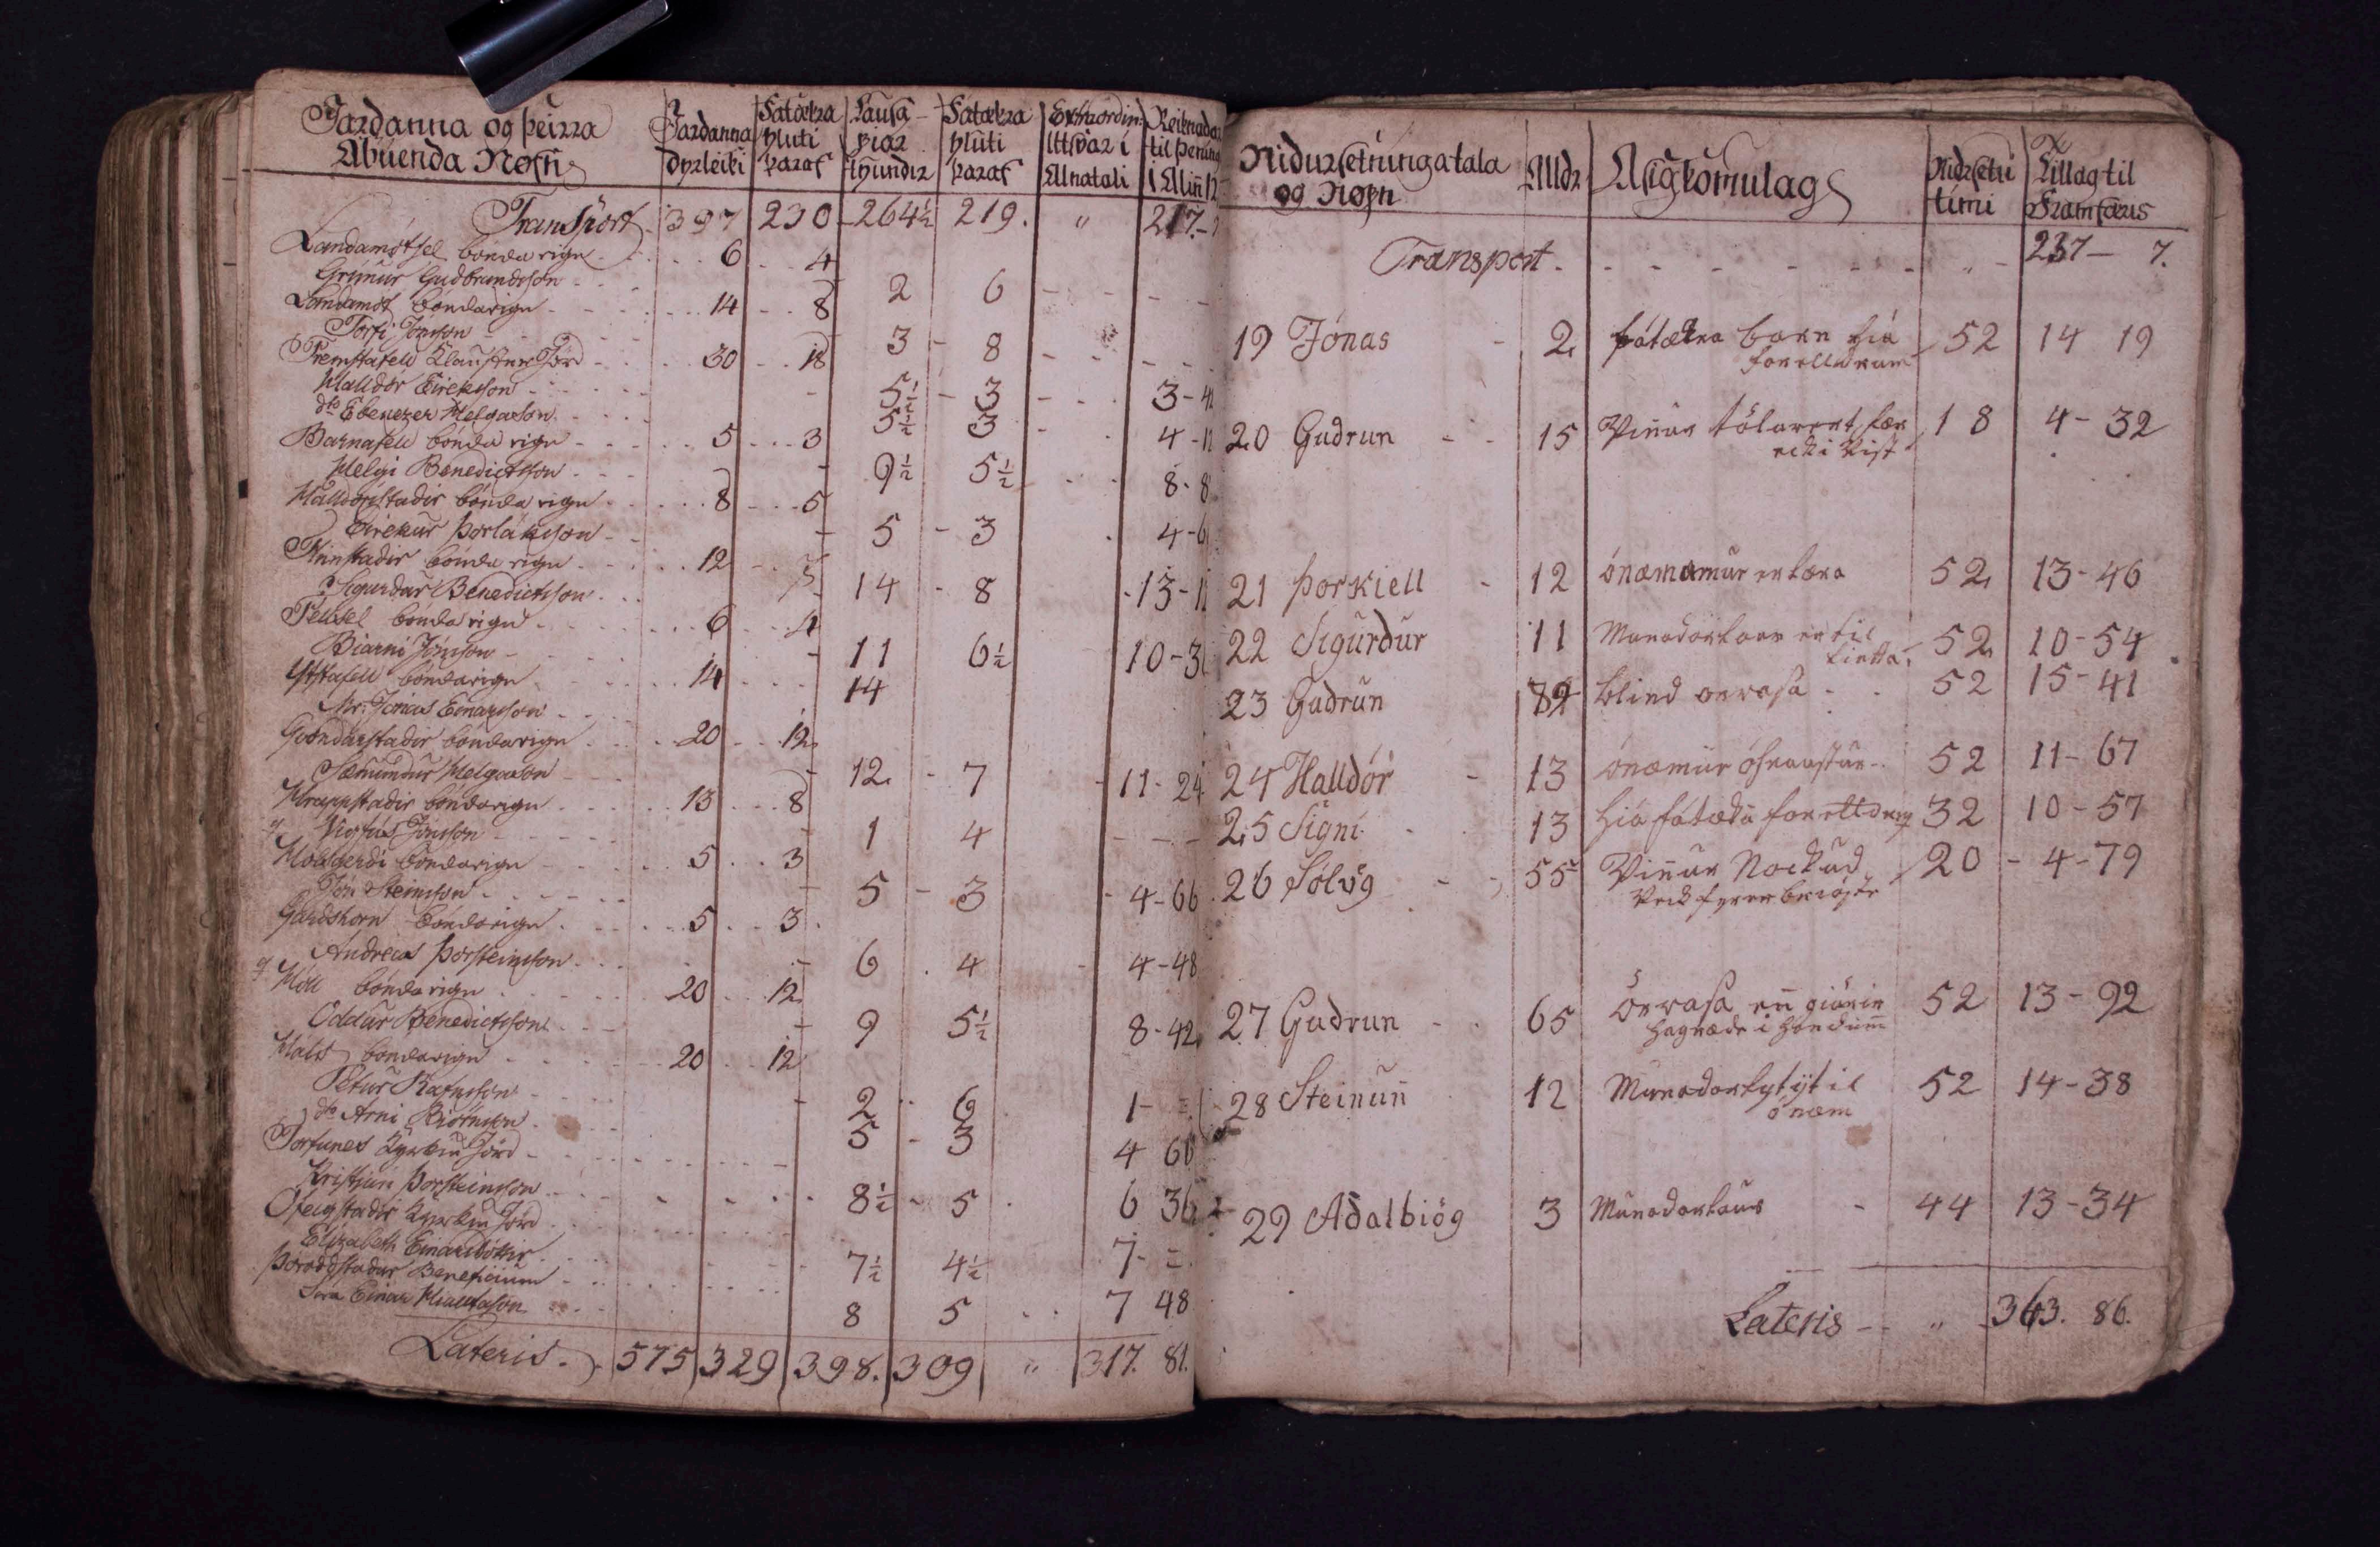 Jardanna og þeirra Ábúenda Nöfn
Jardanna dyrleiki
Fatækra hluti þaraf
Lausa fiár tyundir
Fatækra hluti þaraf
Extraordin:
Alnatali
Transport 397 230 264½ 219. " 217.
Landamótsel bónda eign 6 4
Grímur Gudbrandsson 2 6
Landamót bónda eign 14 8
Torfi Jónsson 3 8
Fremstafell Klausturs Jörd 30 18
Halldór Eireksson 5½ 3 3-4
dto Ebenezer Helgason 5½ 3 4-1
Barnafell bónda eign 5 3
Helgi Benedictsson 9½ 5½ 8-8
Halldórsstadir bónda eign 8 5
Eirekur Þorláksson 5 3 4-6
Finnstadir bónda eign 12
Sigurdur Benedictsson 14 8 13-1
Fellsel bónda eign 6 4
Biarni Jónsson 11 6½ 10-3
Ystafell bónda eign 14 14
Mr. Jónas Einarsson
Gvöndarstadir bónda eign 20 12
Sæmundur Helgason 12 7 11-24
Hrappstadir bónda eign 13 8
Vigfús Jónsson 1 4
Holtgerdi bónda eign 5 3
Jón Steinsson 5 3 4-66
Gardshorn bónda eign 5 3
Andreas Þorsteinsson 6 4 4-48
Hóll bónda eign 20 12
Oddur Benedictsson 9 5½ 8-42
Háls bónda eign 20 12
Petur Rafnsson 2 6 1-=
dto Arni Biörnsson 5 3 4 66
Torfunes Kyrkiu Jörd
Kristján Þorsteinsson 8½ 5 6 36
Ofeigstadir Kyrkiu Jörd
Elizabeth Einarsdóttir 7½ 4½ 7-=
Þóroddstadur Beneficium
Sira Einar Hialtason 8 5 7 48
Lateris. 575 329 398. 309 " 317. 81.
Nidursetninga tala og Nöfn
Alldr
Asigkomulag
Nidrsetu timi
Tillag til Framfæris
Transport " 237 7.
19 Jónas 2 fátækra barn hiá 52 14 19
forelldrum
20 Gudrun 15 Vinnur 18 4-32
ecki vist
21 Þorkiell 12 52 13-46
22 Sigurdur 11 Munadarlaus er til 52 10-54
23 Gudrun 82 blind 52 15-41
24 Halldór 13 ónæmur óhraustur 52 11-67
25 Signi 13 hiá fátæku forelldri 32 10-57
26 Sólvög 55 Vinnur Nockud 20 4-79
Veik fyrer briósti
27 Gudrun 65 52 13-92
i höndum
28 Steinunn 12 52 14-38
ónæm
29 Adalbiög 3 Munadarlaus 44 13-34
Lateris " 363. 86.